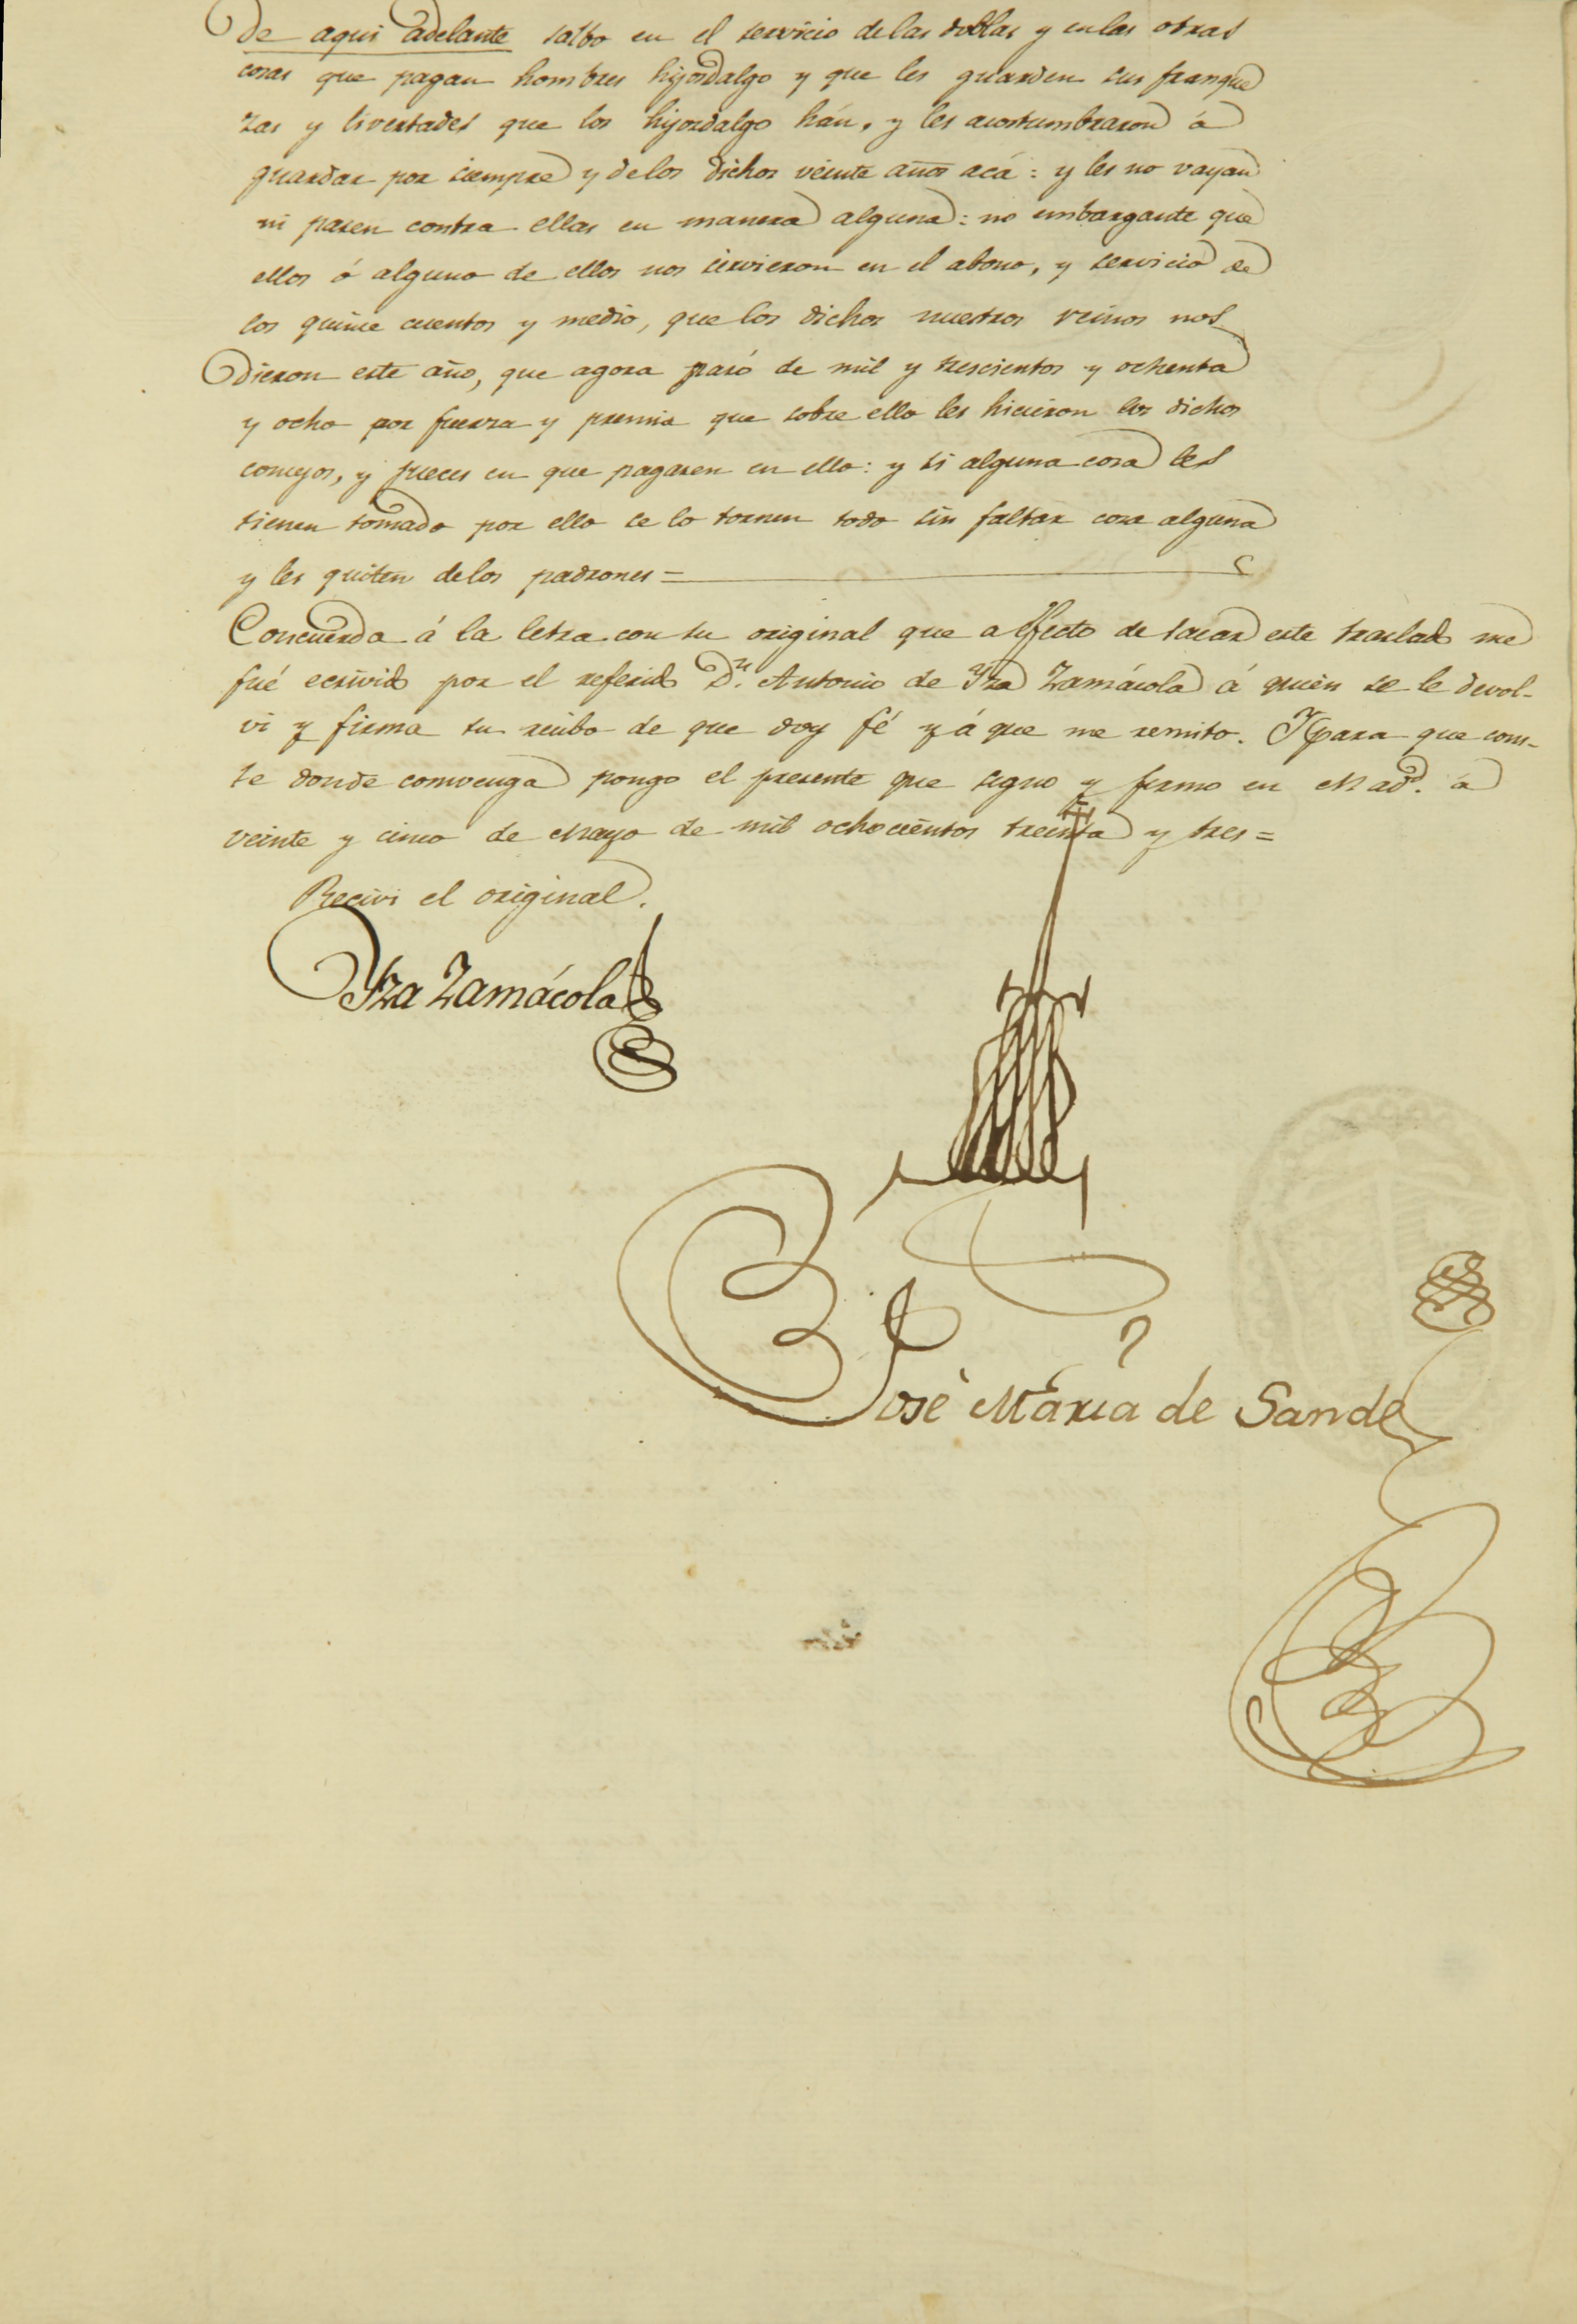 De aqui adelante salbo en el servicio de las doblas y en las otras
cosas que pagan hombres hijosdalgo y que les guarden sus franque
zas y livertades que los hijosdalgo hán, y les acostumbraron á
guardar por siempre y de los dichos veinte años acá: y les no vayan
ni pasen contra ellas en manera alguna: no embargante que
ellos ó alguno de ellos nos sirvieron en el abono, y servicio de
los quince cuentos y medio, que los dichos nuestros reinos nos
dieron este año, que agora pasó de mil y trescientos y ochenta
y ocho por fuerza y premia que sobre ello les hicieron los dichos
concejos, y jueces en que pagasen en ello: y si alguna cosa les
tienen tomado por ello se lo tornen todo sin faltar cosa alguna
y les quiten de los padrones =
Concuerda á la letra con su original que a efecto de sacar este traslado me
fué ecsivido por el referido Dn. Antonio de Yza Zamácola á quien se le devol-
vi y firma su recibo de que doy fé y á que me remito. Y para que cons-
te donde convenga pongo el presente que signo y firmo en Madd. á
veinte y cinco de Mayo de mil ochocientos treinta y tres =
Recivi el original.
Yza Zamácola
José María de Sande